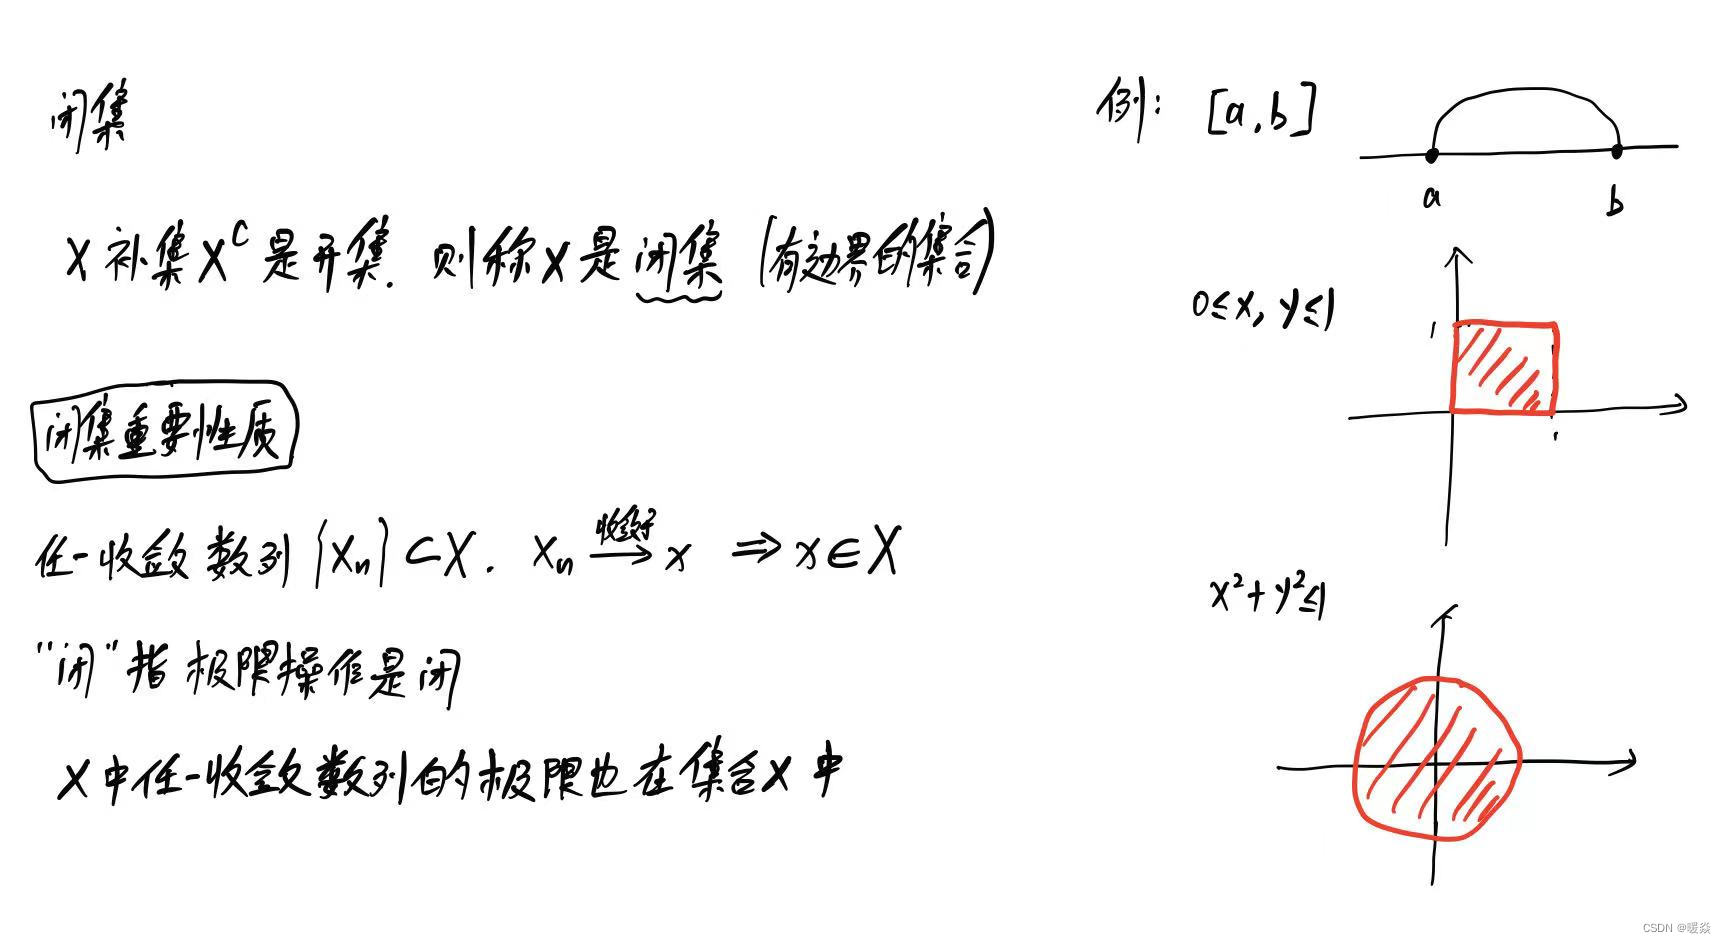 闭集
X 补集 X^C 是开集. 则称 X 是闭集 (有边界的集合)
闭集重要性质
任一收敛数列 {Xn} ⊂ X. Xn 收敛于→ x ⇒ x ∈ X
"闭"指极限操作是闭
X 中任一收敛数列的极限也在集合 X 中
例: [a, b]
a b
0≤x, y≤1
1
1
x²+y²≤1
CSDN @暖焱